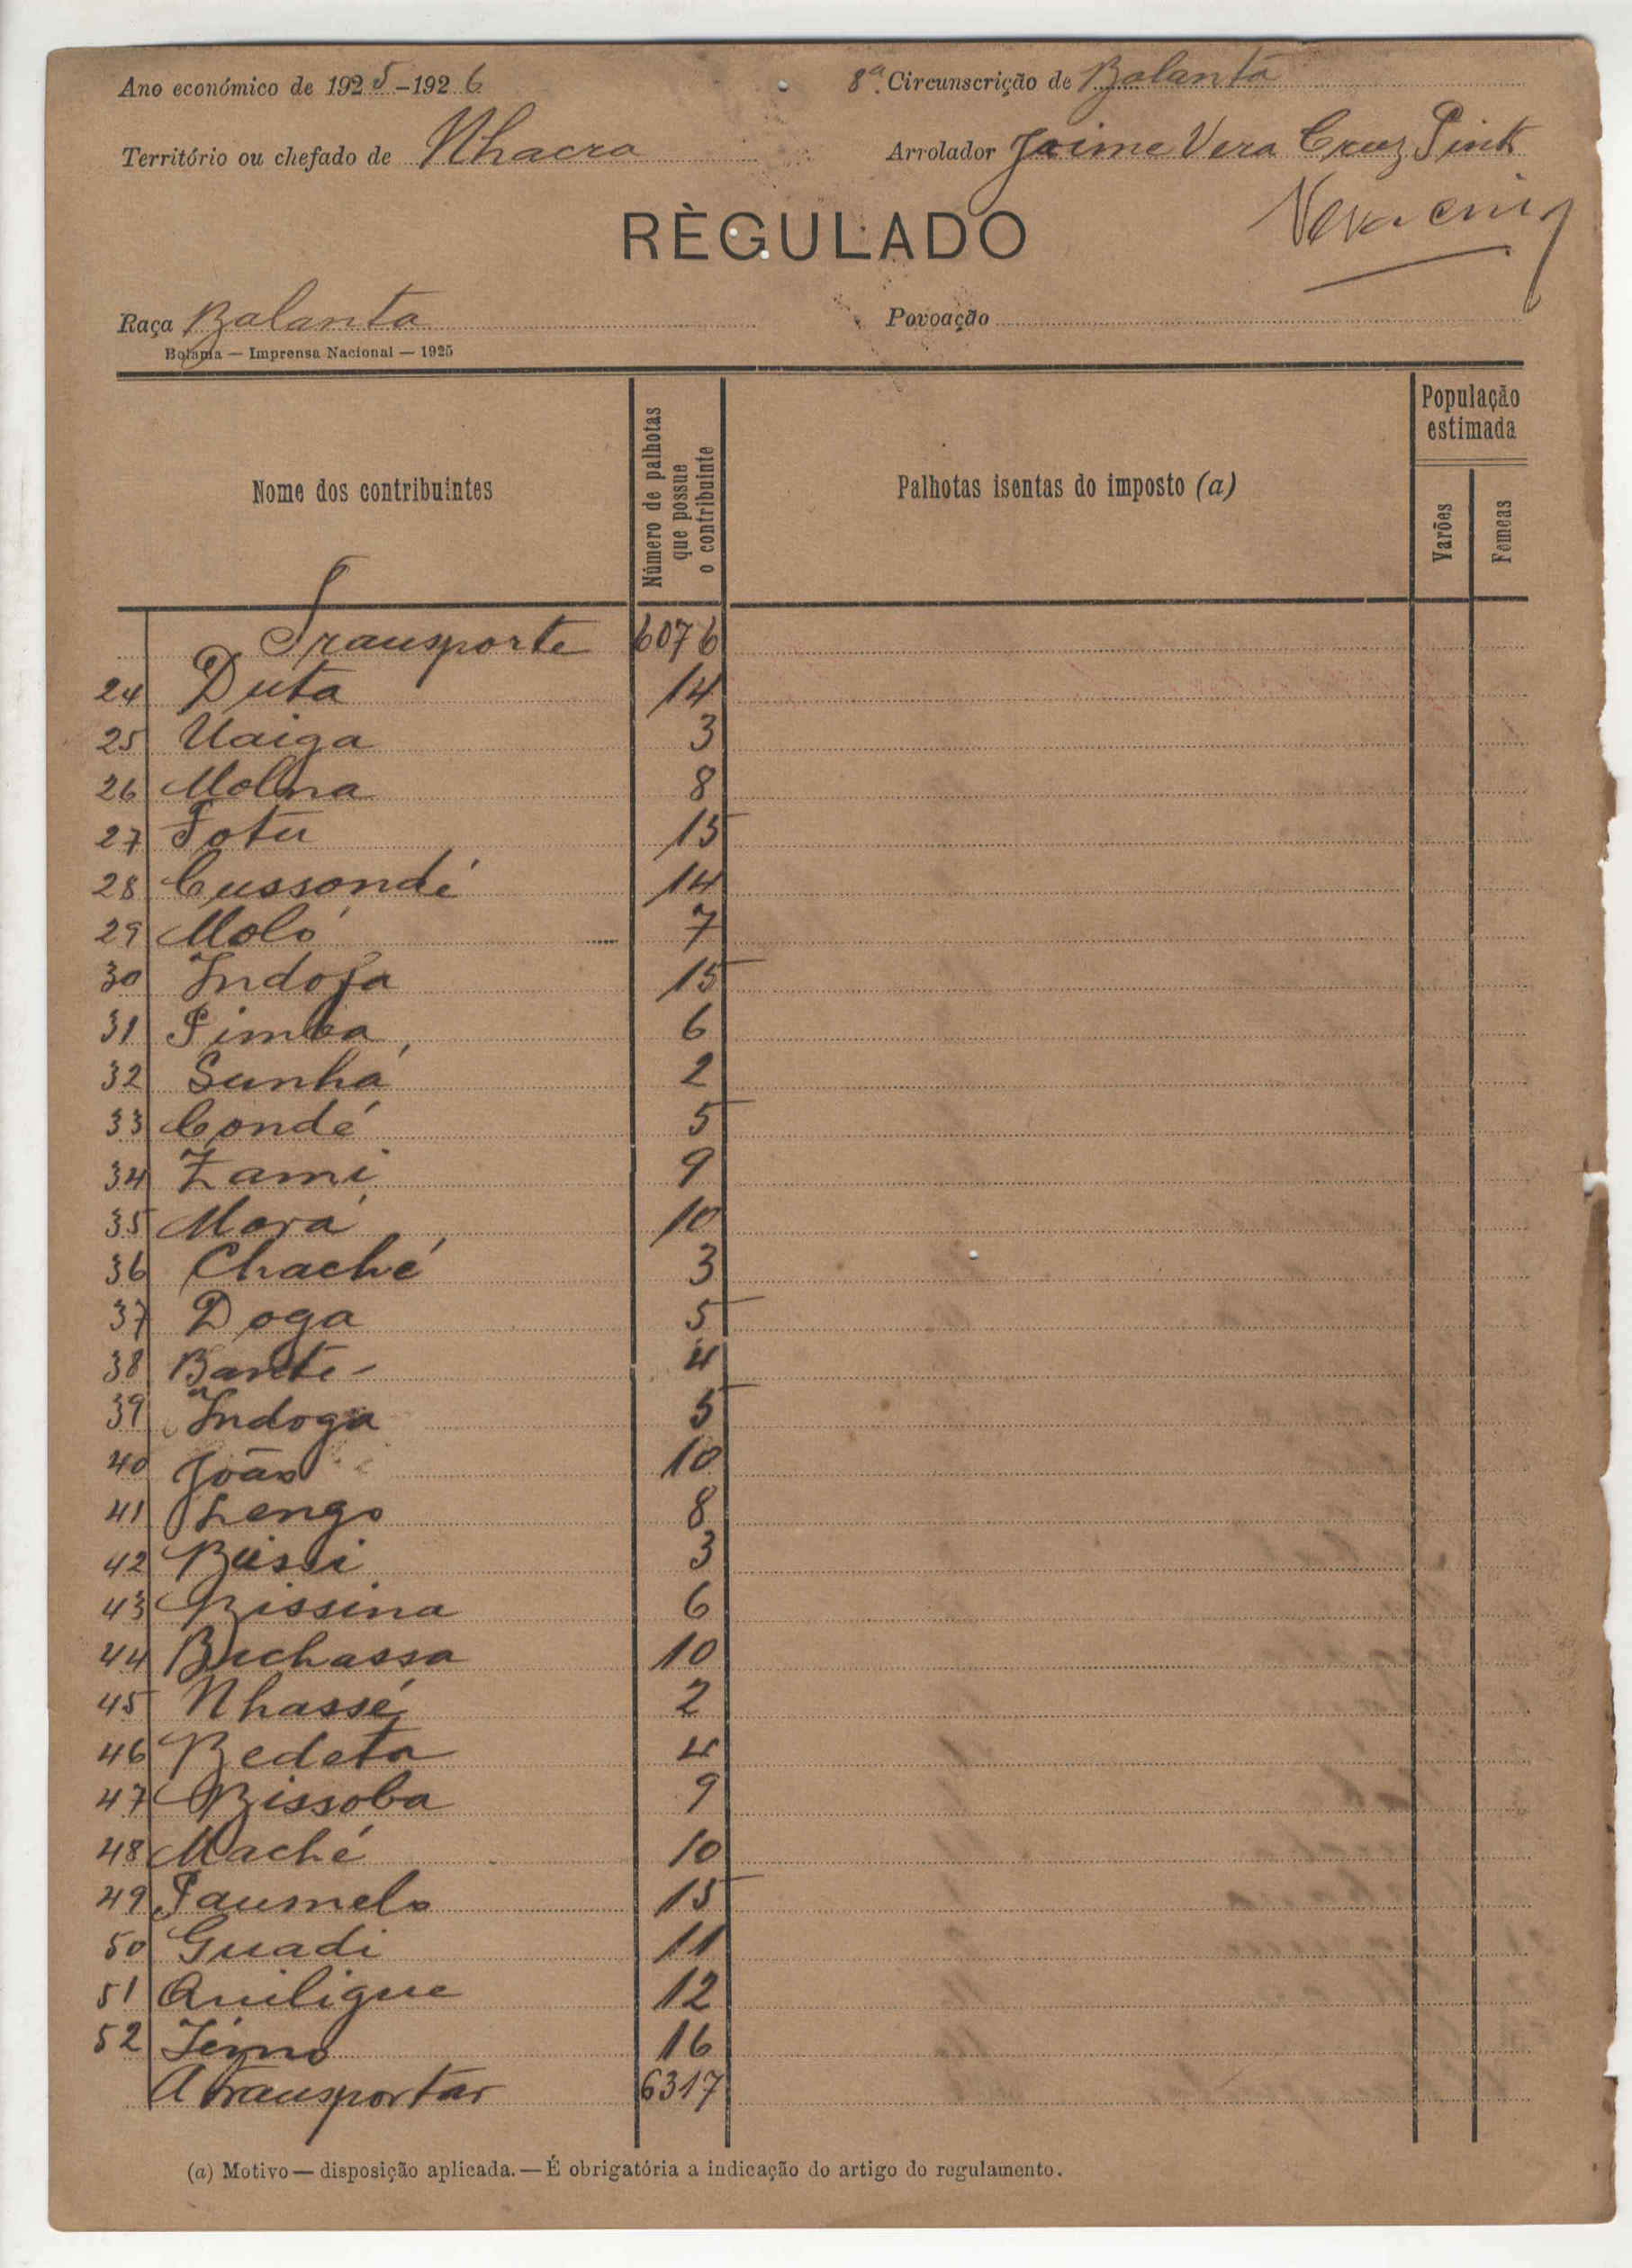 Ano económico de 1925-1926
8ª Circunscrição de Balanta
Território ou chefado de Nhacra
Arrolador Jaime Vera Cruz Pinto
RÈGULADO
Raça Balanta
Povoação
Bolama — Imprensa Nacional — 1925
Nome dos contribuintes
Número de palhotas que possue o contribuinte
Palhotas isentas do imposto (a)
População estimada
Varões
Femeas
Transporte 6076
24 Duta 14
25 Uaiga 3
26 Molna 8
27 Fotu 15
28 Cussondé 14
29 Moló 7
30 Indofa 15
31 Pimba 6
32 Sunhá 2
33 Condé 5
34 Zami 9
35 Mará 10
36 Chaché 3
37 Doga 5
38 Bante 4
39 Indoga 5
40 João 10
41 Lengo 8
42 Bissi 3
43 Bissina 6
44 Buchassa 10
45 Nhassé 2
46 Bedeta 4
47 Bissoba 9
48 Maché 10
49 Paumelo 15
50 Guadi 11
51 Aniligue 12
52 Iémo 16
A transportar 6317
(a) Motivo — disposição aplicada. — É obrigatória a indicação do artigo do regulamento.